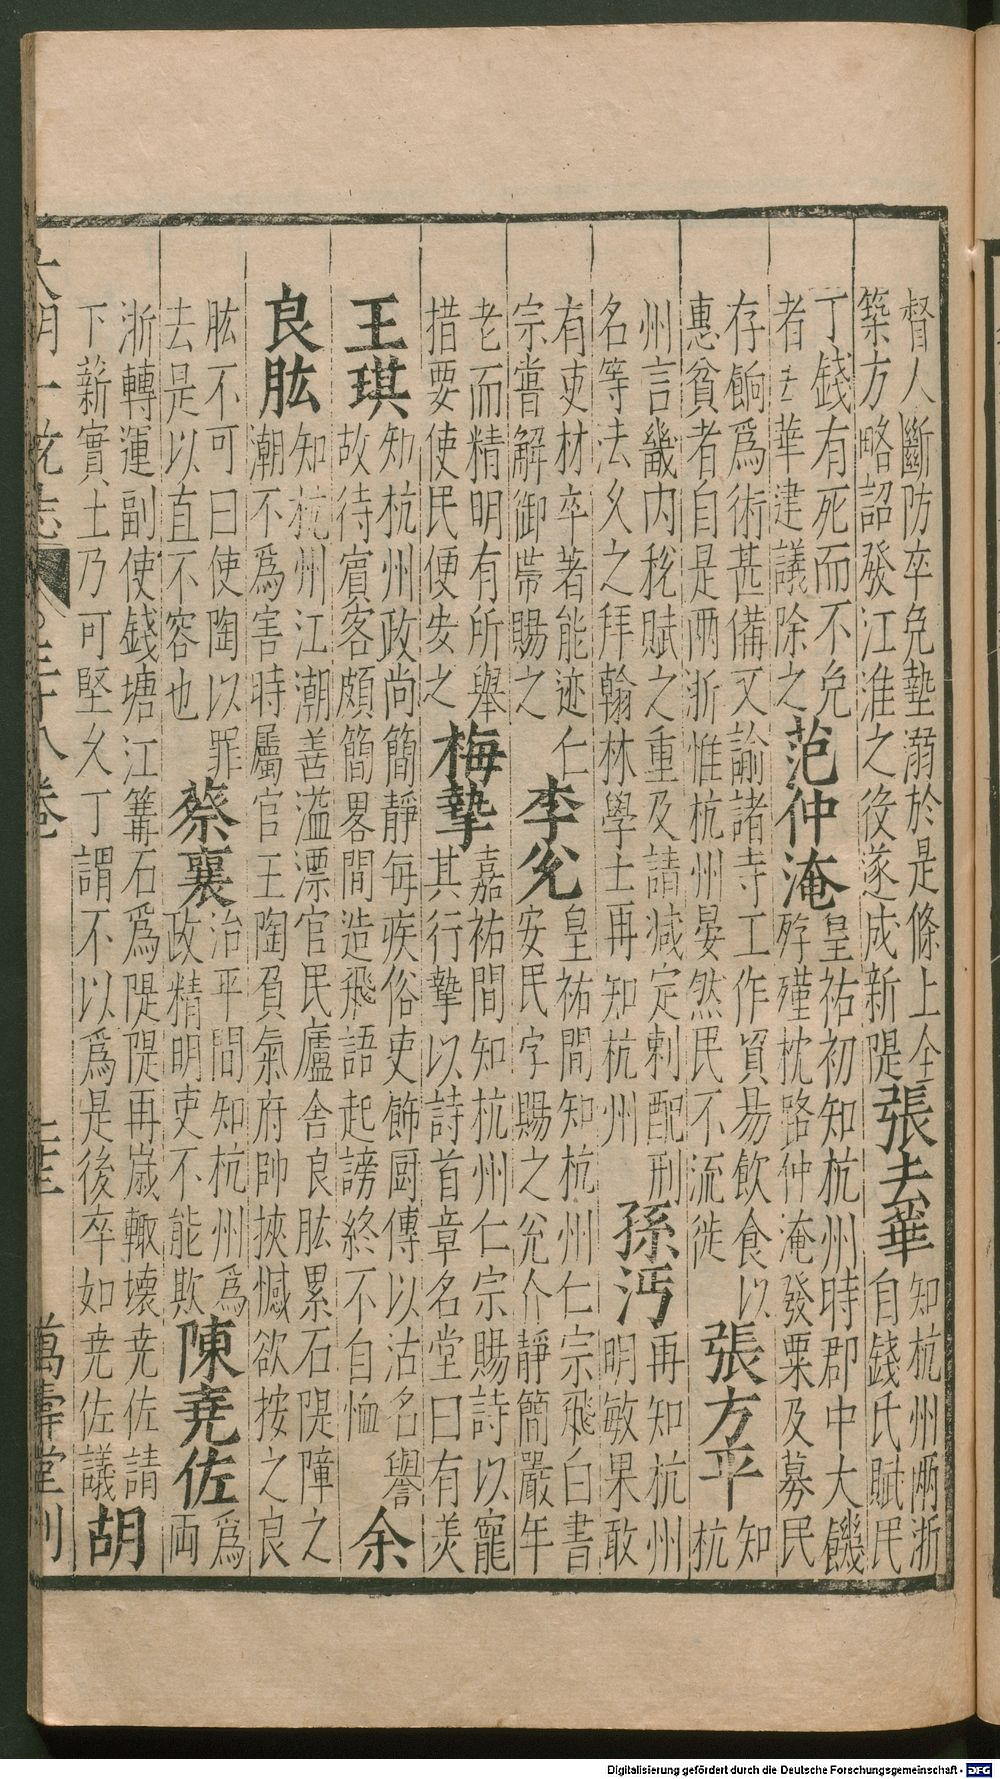 督人斷防卒免墊溺於是條上全
築方略詔發江淮之役遂成新隄
張去華
知杭州兩浙
自錢氏賦民
丁錢有死而不免
者去華建議除之
范仲淹
皇祐初知杭州時郡中大饑
殍殣枕路仲淹發粟及募民
存餉爲術甚備又諭諸寺工作貿易飲食以
惠貧者自是兩浙惟杭州晏然民不流徙
張方平
知
杭
州言畿內稅賦之重及請減定刺配刑
名等法乆之拜翰林學士再知杭州
孫沔
再知杭州
明敏果敢
有吏材卒著能迹仁
宗嘗解御帶賜之
李兊
皇祐間知杭州仁宗飛白書
安民字賜之兊介靜簡嚴年
老而精明有所舉
措要使民便安之
梅摯
嘉祐間知杭州仁宗賜詩以寵
其行摯以詩首章名堂曰有羙
王琪
知杭州政尚簡靜每疾俗吏飾厨傳以沽名譽
故待賓客頗簡畧間造飛語起謗終不自恤
余
良肱
知杭州江潮善溢漂官民廬舍良肱累石隄障之
潮不爲害時屬官王陶負氣府帥挾憾欲按之良
肱不可曰使陶以罪
去是以直不容也
蔡襄
治平間知杭州爲
政精明吏不能欺
陳尭佐
爲
両
浙轉運副使錢塘江篝石爲隄隄再嵗輙壊尭佐請
下薪實土乃可堅乆丁謂不以爲是後卒如尭佐議
胡
大明一統志 三十八卷 萬壽堂刊
Digitalisierung gefördert durch die Deutsche Forschungsgemeinschaft - DFG